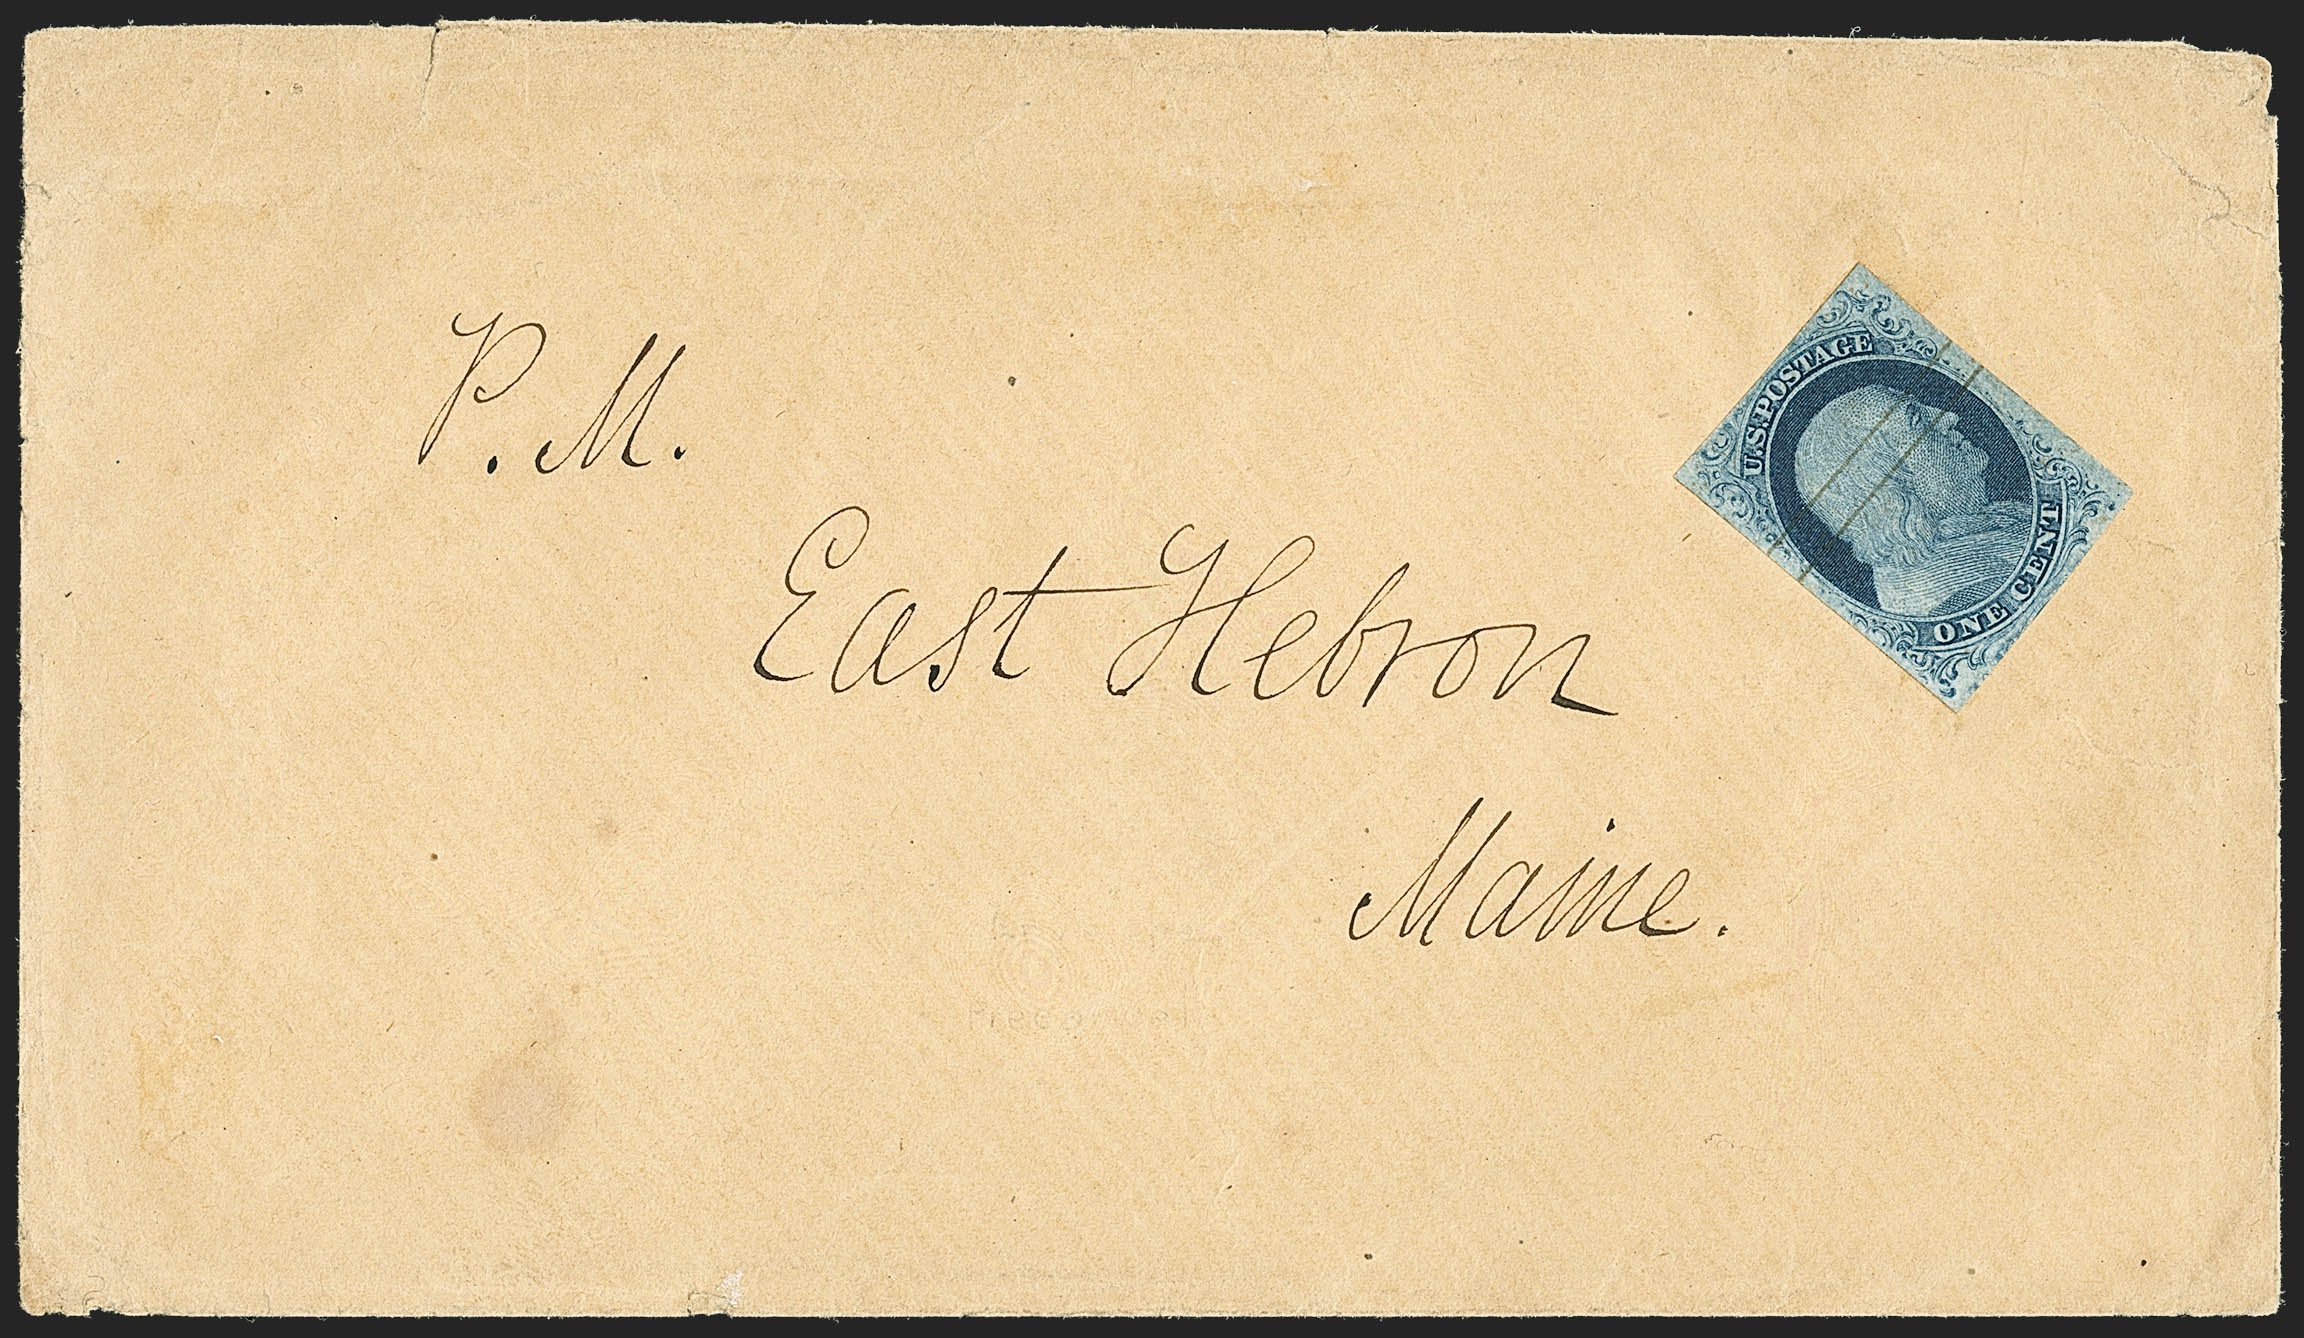 P. M.
East Hebron
Maine.
U.S. POSTAGE
ONE CENT